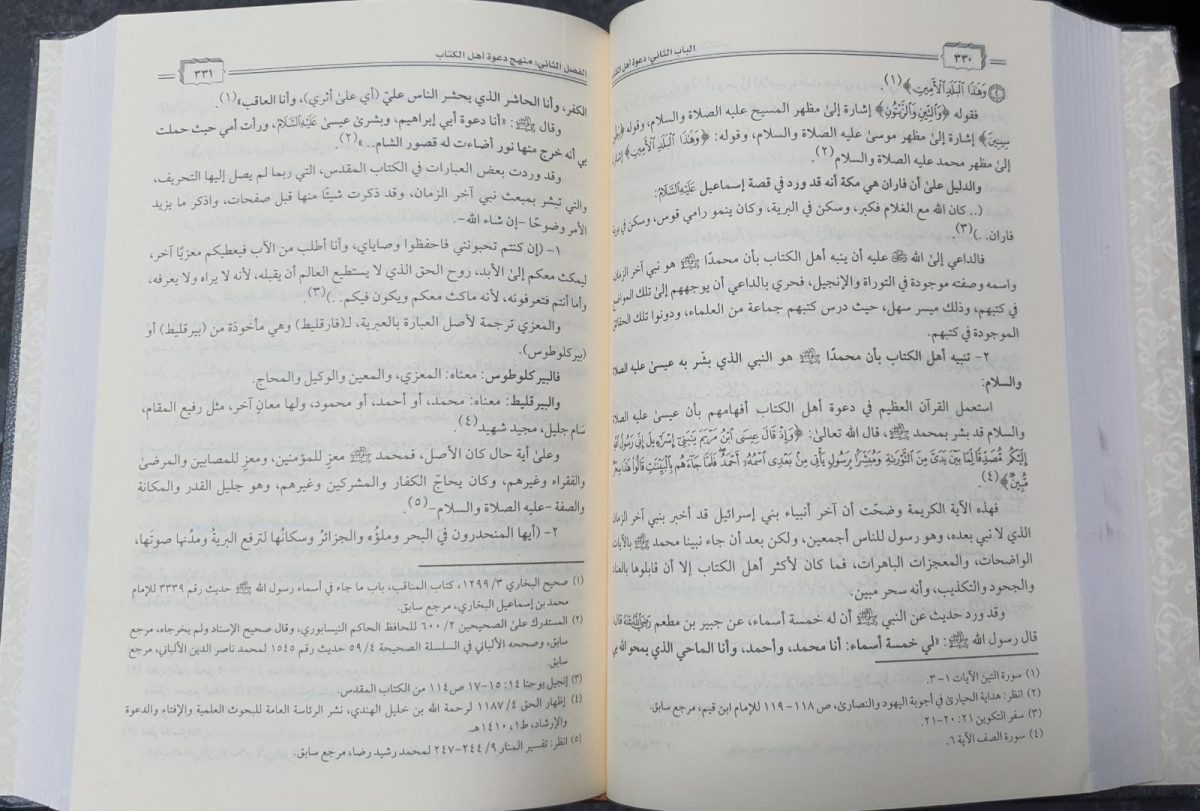 ٣٣٠
الباب الثاني: دعوة أهل
﴿وَهَٰذَا ٱلۡبَلَدِ ٱلۡأَمِينِ﴾(١).
فقوله ﴿وَٱلتِّينِ وَٱلزَّيۡتُونِ﴾ إشارة إلىٰ مظهر المسيح عليه الصلاة والسلام، وقوله
سِينِينَ﴾ إشارة إلىٰ مظهر موسىٰ عليه الصلاة والسلام، وقوله: ﴿وَهَٰذَا ٱلۡبَلَدِ ٱلۡأَمِينِ﴾
إلىٰ مظهر محمد عليه الصلاة والسلام(٢).
والدليل علىٰ أن فاران هي مكة أنه قد ورد في قصة إسماعيل عَلَيْهِ السَّلَامُ:
(.. كان الله مع الغلام فكبر، وسكن في البرية، وكان ينمو رامي قوس، وسكن في
فاران. .)(٣)
فالداعي إلىٰ الله ﷻ عليه أن ينبه أهل الكتاب بأن محمدًا ﷺ هو نبي آخر الزمان
واسمه وصفته موجودة في التوراة والإنجيل، فحري بالداعي أن يوجههم إلىٰ تلك
في كتبهم، وذلك ميسر سهل، حيث درس كتبهم جماعة من العلماء، ودونوا تلك
الموجودة في كتبهم.
٢- تنبيه أهل الكتاب بأن محمدًا ﷺ هو النبي الذي بشّر به عيسىٰ عليه
والسلام:
استعمل القرآن العظيم في دعوة أهل الكتاب أفهامهم بأن عيسىٰ عليه
والسلام قد بشر بمحمد ﷺ، قال الله تعالىٰ: ﴿وَإِذۡ قَالَ عِيسَى ٱبۡنُ مَرۡيَمَ يَٰبَنِيٓ إِسۡرَٰٓءِيلَ إِنِّي رَسُولُ ٱللَّهِ
إِلَيۡكُم مُّصَدِّقٗا لِّمَا بَيۡنَ يَدَيَّ مِنَ ٱلتَّوۡرَىٰةِ وَمُبَشِّرَۢا بِرَسُولٖ يَأۡتِي مِنۢ بَعۡدِي ٱسۡمُهُۥٓ أَحۡمَدُۖ فَلَمَّا جَآءَهُم بِٱلۡبَيِّنَٰتِ قَالُواْ هَٰذَا
مُّبِينٞ﴾(٤)
فهذه الآية الكريمة وضحّت أن آخر أنبياء بني إسرائيل قد أخبر بنبي آخر الزمان
الذي لا نبي بعده، وهو رسول للناس أجمعين، ولكن بعد أن جاء نبينا محمد ﷺ بالآيات
الواضحات، والمعجزات الباهرات، فما كان لأكثر أهل الكتاب إلا أن قابلوها
والجحود والتكذيب، وأنه سحر مبين.
وقد ورد حديث عن النبي ﷺ أن له خمسة أسماء، عن جبير بن مطعم
قال رسول الله ﷺ: «لي خمسة أسماء: أنا محمد، وأحمد، وأنا الماحي الذي يمحو الله بي
(١) سورة التين الآيات ١-٣.
(٢) انظر: هداية الحيارىٰ في أجوبة اليهود والنصارىٰ، ص ١١٨-١١٩ للإمام ابن قيم، مرجع سابق.
(٣) سفر التكوين ٢١: ٢٠-٢١.
(٤) سورة الصف الآية ٦.
الفصل الثاني: منهج دعوة أهل الكتاب
٣٣١
الكفر، وأنا الحاشر الذي يحشر الناس عليّ (أي علىٰ أثري)، وأنا العاقب»(١).
وقال ﷺ: «أنا دعوة أبي إبراهيم، وبشرىٰ عيسىٰ عَلَيْهِ السَّلَامُ، ورأت أمي حيث حملت
بي أنه خرج منها نور أضاءت له قصور الشام..»(٢).
وقد وردت بعض العبارات في الكتاب المقدس، التي ربما لم يصل إليها التحريف،
والتي تبشر بمبعث نبي آخر الزمان، وقد ذكرت شيئًا منها قبل صفحات، واذكر ما يزيد
الأمر وضوحًا -إن شاء الله-.
١- (إن كنتم تحبونني فاحفظوا وصاياي، وأنا أطلب من الآب فيعطيكم معزيًا آخر،
ليمكث معكم إلىٰ الأبد، روح الحق الذي لا يستطيع العالم أن يقبله، لأنه لا يراه ولا يعرفه،
وأما أنتم فتعرفونه، لأنه ماكث معكم ويكون فيكم. .)(٣)
والمعزي ترجمة لأصل العبارة بالعبرية، لـ(فارقليط) وهي مأخوذة من (بيرقليط) أو
(بيركلوطوس).
فالبيركلوطوس: معناه: المعزي، والمعين والوكيل والمحاج.
والبيرقليط: معناه: محمد، أو أحمد، أو محمود، ولها معانٍ آخر، مثل رفيع المقام،
سَام جليل، مجيد شهيد(٤)
وعلىٰ أية حال كان الأصل، فمحمد ﷺ معزٍ للمؤمنين، ومعزٍ للمصابين والمرضىٰ
والفقراء وغيرهم، وكان يحاجّ الكفار والمشركين وغيرهم، وهو جليل القدر والمكانة
والصفة -عليه الصلاة والسلام-(٥).
٢- (أيها المنحدرون في البحر وملؤُه والجزائرُ وسكانُها لترفع البريةُ ومدُنها صوتَها،
(١) صحيح البخاري ٣/ ١٢٩٩، كتاب المناقب، باب ما جاء في أسماء رسول الله ﷺ حديث رقم ٣٣٣٩ للإمام
محمد بن إسماعيل البخاري، مرجع سابق.
(٢) المستدرك علىٰ الصحيحين ٢/ ٦٠٠ للحافظ الحاكم النيسابوري، وقال صحيح الإسناد ولم يخرجاه، مرجع
سابق، وصححه الألباني في السلسلة الصحيحة ٤/ ٥٩ حديث رقم ١٥٤٥ لمحمد ناصر الدين الألباني، مرجع
سابق.
(٣) إنجيل يوحنا ١٤: ١٥-١٧ ص١١٤ من الكتاب المقدس.
(٤) إظهار الحق ٤/ ١١٨٧ لرحمة الله بن خليل الهندي، نشر الرئاسة العامة للبحوث العلمية والإفتاء والدعوة
والإرشاد، ط١، ١٤١٠هـ.
(٥) انظر: تفسير المنار ٩/ ٢٤٤-٢٤٧ لمحمد رشيد رضا، مرجع سابق.